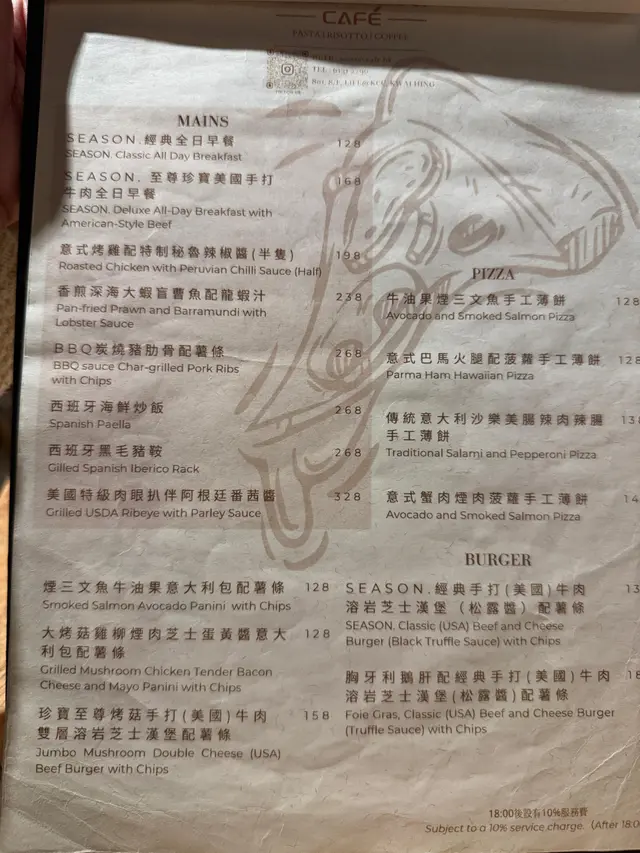 CAFÉ
PASTA | RISOTTO | COFFEE
KWAI HING
MAINS
SEASON.經典全日早餐 128
SEASON. Classic All Day Breakfast
SEASON. 至尊珍寶美國手打 168
牛肉全日早餐
SEASON. Deluxe All-Day Breakfast with
American-Style Beef
意式烤雞配特制秘魯辣椒醬(半隻) 198
Roasted Chicken with Peruvian Chilli Sauce (Half)
香煎深海大蝦盲曹魚配龍蝦汁 238
Pan-fried Prawn and Barramundi with
Lobster Sauce
BBQ炭燒豬肋骨配薯條 268
BBQ sauce Char-grilled Pork Ribs
with Chips
西班牙海鮮炒飯 268
Spanish Paella
西班牙黑毛豬鞍 268
Gilled Spanish Iberico Rack
美國特級肉眼扒伴阿根廷番茜醬 328
Grilled USDA Ribeye with Parley Sauce
煙三文魚牛油果意大利包配薯條 128
Smoked Salmon Avocado Panini with Chips
大烤菇雞柳煙肉芝士蛋黃醬意大 128
利包配薯條
Grilled Mushroom Chicken Tender Bacon
Cheese and Mayo Panini with Chips
珍寶至尊烤菇手打(美國)牛肉 158
雙層溶岩芝士漢堡配薯條
Jumbo Mushroom Double Cheese (USA)
Beef Burger with Chips
PIZZA
牛油果煙三文魚手工薄餅 128
Avocado and Smoked Salmon Pizza
意式巴馬火腿配菠蘿手工薄餅 128
Parma Ham Hawaiian Pizza
傳統意大利沙樂美腸辣肉辣腸
手工薄餅
Traditional Salami and Pepperoni Pizza
意式蟹肉煙肉菠蘿手工薄餅
Avocado and Smoked Salmon Pizza
BURGER
SEASON.經典手打(美國)牛肉
溶岩芝士漢堡（松露醬）配薯條
SEASON. Classic (USA) Beef and Cheese
Burger (Black Truffle Sauce) with Chips
匈牙利鵝肝配經典手打(美國)牛肉
溶岩芝士漢堡(松露醬)配薯條
Foie Gras, Classic (USA) Beef and Cheese Burger
(Truffle Sauce) with Chips
18:00後設有10%服務費
Subject to a 10% service charge. (After 18:0